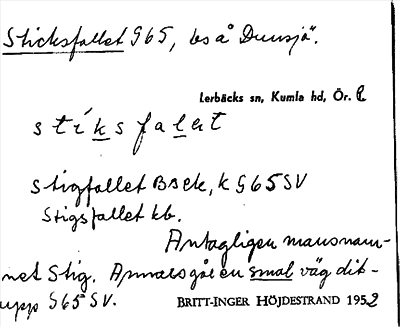 Sticksfallet 965, bs å Dunsjö.
Lerbäcks sn, Kumla hd, Ör. l
stíksfalat
Stigfallet Bsek, k 965 SV
Stigsfallet kb.
Antagligen mansnam-
net Stig. Annars går en smal väg dit-
upp 965 SV.
BRITT-INGER HÖJDESTRAND 1952